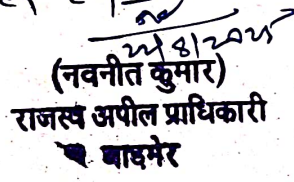 22/8/2025
(नवनीत कुमार)
राजस्व अपील प्राधिकारी
बाड़मेर